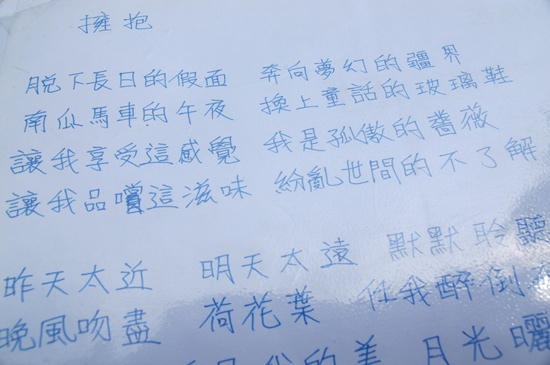 擁抱
脫下長日的假面 奔向夢幻的疆界
南瓜馬車的午夜 換上童話的玻璃鞋
讓我享受這感覺 我是孤傲的薔薇
讓我品嚐這滋味 紛亂世間的不了解
昨天太近 明天太遠 默默聆聽
晚風吻盡 荷花葉 任我醉倒
我的美 月光曬